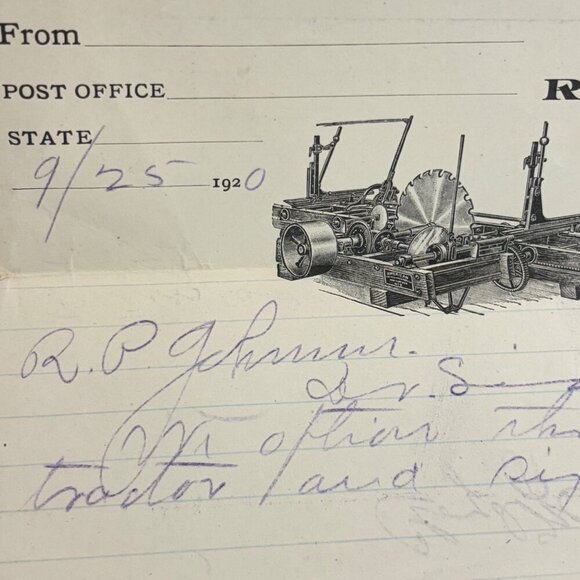 From
POST OFFICE
STATE
9/25 1920
R. P. Johnson.
Dr. Sir
option
tractor and